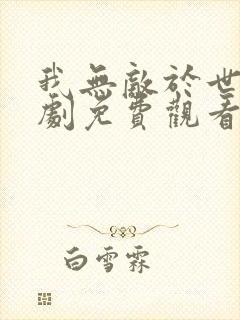 我無敵於世
劇免費觀看
白雪霖